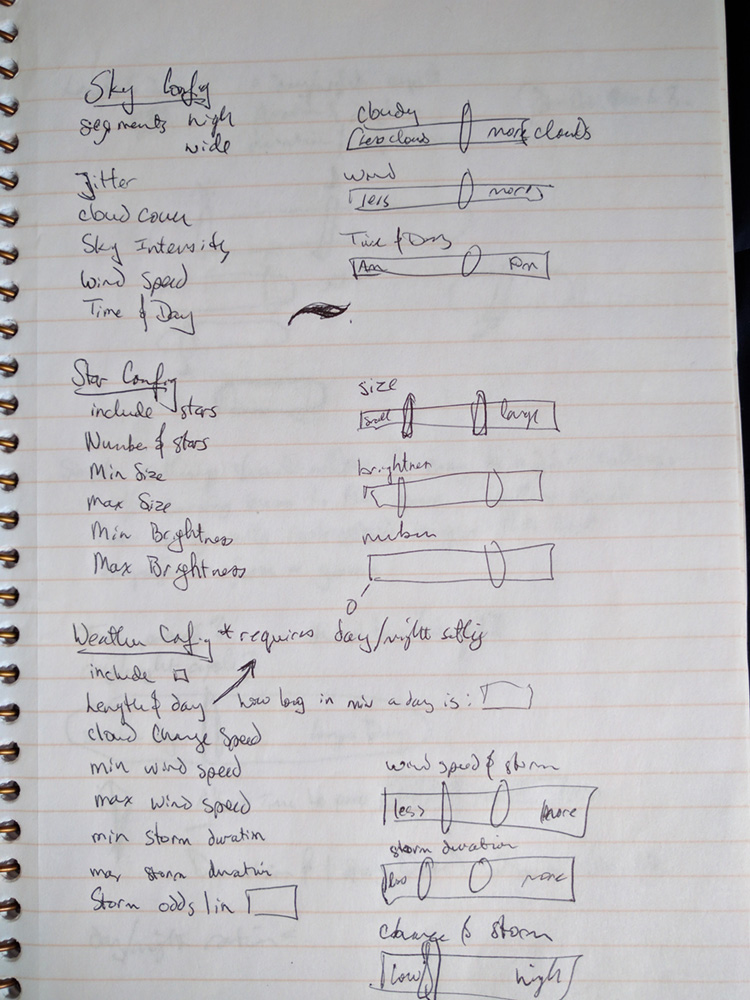 Sky Config
segments high
wide
Jitter
cloud cover
Sky Intensity
Wind Speed
Time of Day
cloudy
less clouds more clouds
wind
less more
Time of Day
Am Pm
Star Config
include stars
Number of stars
Min Size
Max Size
Min Brightness
Max Brightness
size
small large
brightness
number
0
Weather Config * requires day/night setting
include
Length of day how long in min a day is:
cloud change speed
min wind speed
max wind speed
min storm duration
max storm duration
Storm odds 1 in
wind speed of storm
less more
storm duration
less more
chance of storm
low high